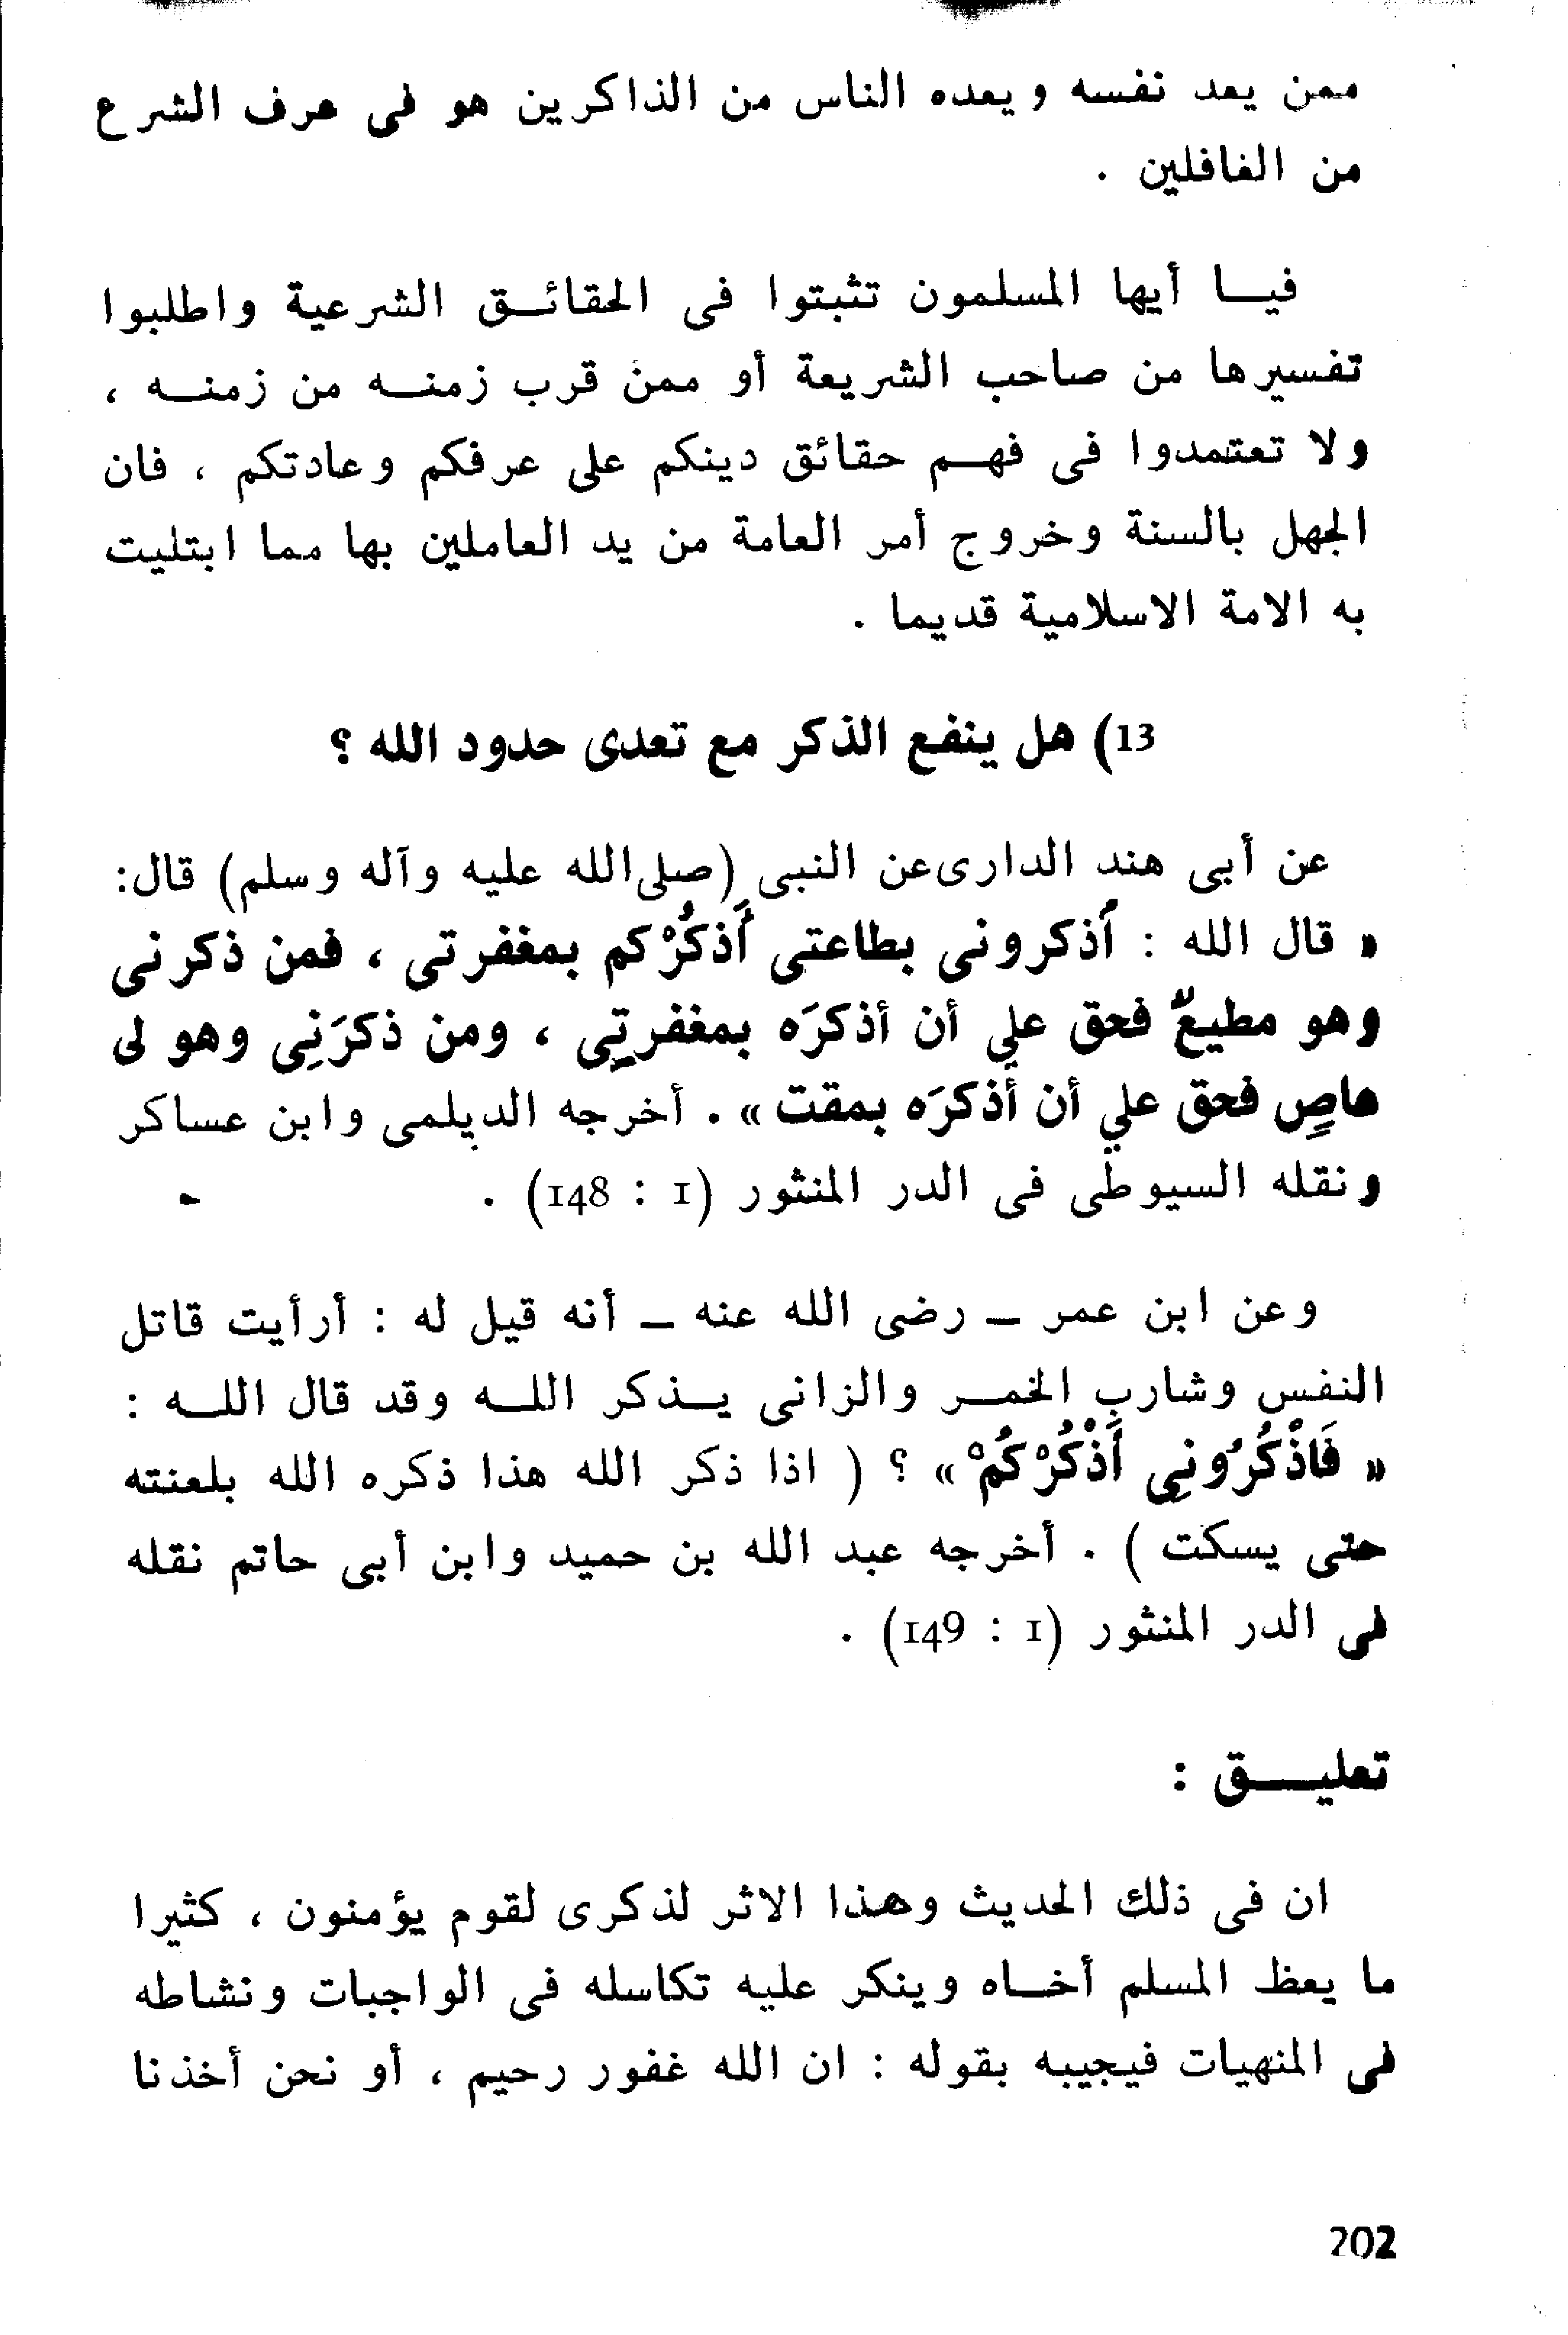 ممن يعد نفسه ويعده الناس من الذاكرين هو في عرف الشرع
من الغافلين .
فيـا أيها المسلمون تثبتوا في الحقائـق الشرعية واطلبوا
تفسيرها من صاحب الشريعة أو ممن قرب زمنـه من زمنـه ،
ولا تعتمدوا في فهـم حقائق دينكم على عرفكم وعادتكم ، فان
الجهل بالسنة وخروج أمر العامة من يد العاملين بها مما ابتليت
به الامة الاسلامية قديما .
13) هل ينفع الذكر مع تعدى حدود الله ؟
عن أبي هند الدارى عن النبي (صلى الله عليه وآله وسلم) قال:
« قال الله : أذكروني بطاعتي أَذكُرْكم بمغفرتي ، فمن ذكرني
وهو مطيعٌ فحق علي أن أذكرَه بمغفرتِي ، ومن ذكرَنِي وهو لي
عاصٍ فحق علي أن أذكرَه بمقت » . أخرجه الديلمي وابن عساكر
ونقله السيوطي في الدر المنثور (1 : 148) .
وعن ابن عمر – رضي الله عنه – أنه قيل له : أرأيت قاتل
النفس وشارب الخمـر والزاني يـذكر اللـه وقد قال اللـه :
« فَاذْكُرُونِي أَذْكُرْكُمْ » ؟ ( اذا ذكر الله هذا ذكره الله بلعنته
حتى يسكت ) . أخرجه عبد الله بن حميد وابن أبي حاتم نقله
في الدر المنثور (1 : 149) .
تعليــق :
ان في ذلك الحديث وهذا الاثر لذكرى لقوم يؤمنون ، كثيرا
ما يعظ المسلم أخـاه وينكر عليه تكاسله في الواجبات ونشاطه
في المنهيات فيجيبه بقوله : ان الله غفور رحيم ، أو نحن أخذنا
202